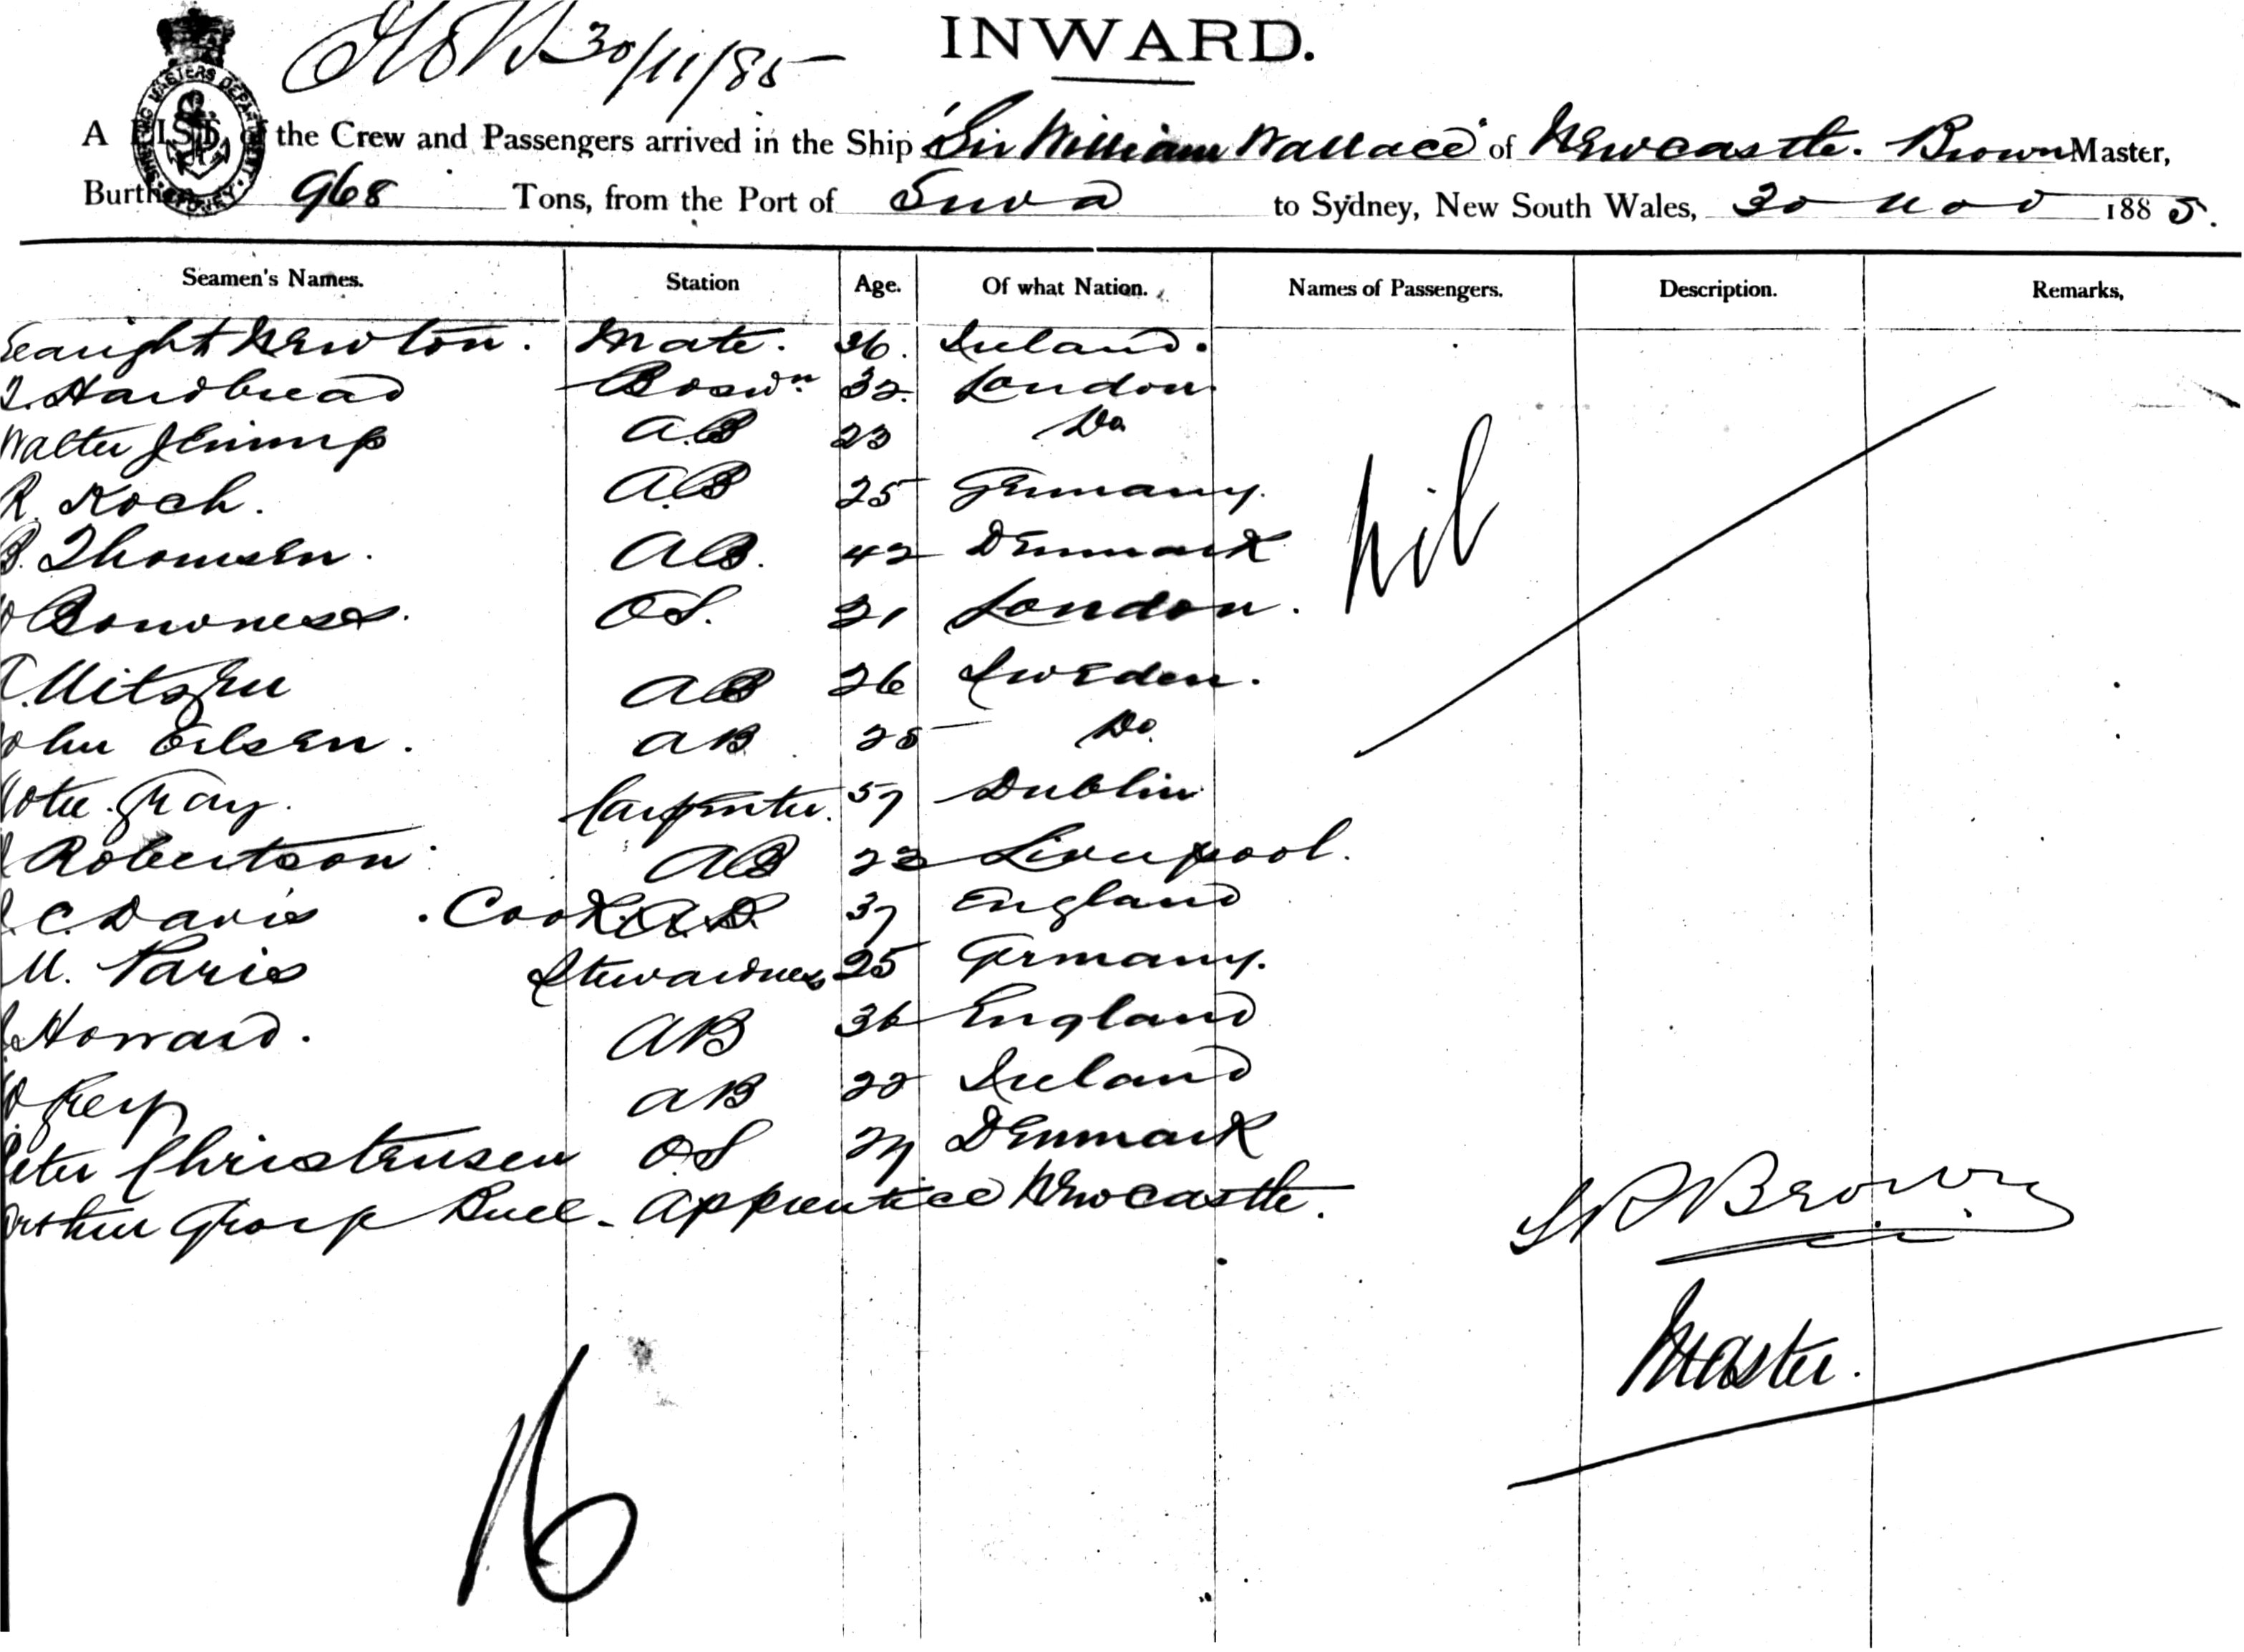 30/11/85
INWARD.
A LIST of the Crew and Passengers arrived in the Ship "Sir William Wallace" of Newcastle. Brown Master,
Burthen 968 Tons, from the Port of Suva to Sydney, New South Wales, 30 Nov 1885.
Seamen's Names. Station Age. Of what Nation. Names of Passengers. Description. Remarks,
Newton. Mate. 36. Ireland.
Hardbread Boswn 32. London.
Walter A.B 23 Do
R. Koch. A.B 25 Germany.
B. Thomsen. A.B. 42 Denmark
Bowness. O.S. 21 London.
AB 26 Sweden.
AB 25 Do.
Gray. Carpenter. 57 Dublin
Robertson AB 23 Liverpool.
C. Davis Cook & A.B. 37 England
M. Paris Stewardess 25 Germany.
Howard. AB 36 England
AB 22 Ireland
Peter Christensen O.S Denmark
Arthur George Buce - Apprentice Newcastle.
Nil
Brown
Master.
16